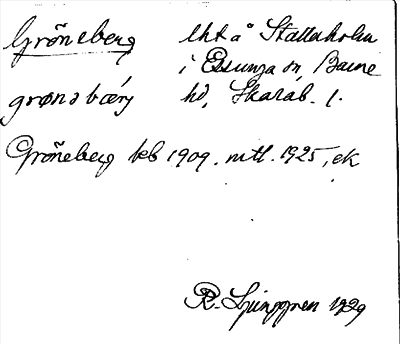 Gröneberg lht å Stallaholm
i Essunga sn, Barne
grønəbærj hd, Skarab. l.
Gröneberg teb 1909. mtl. 1925, ek
R. Ljunggren 1929